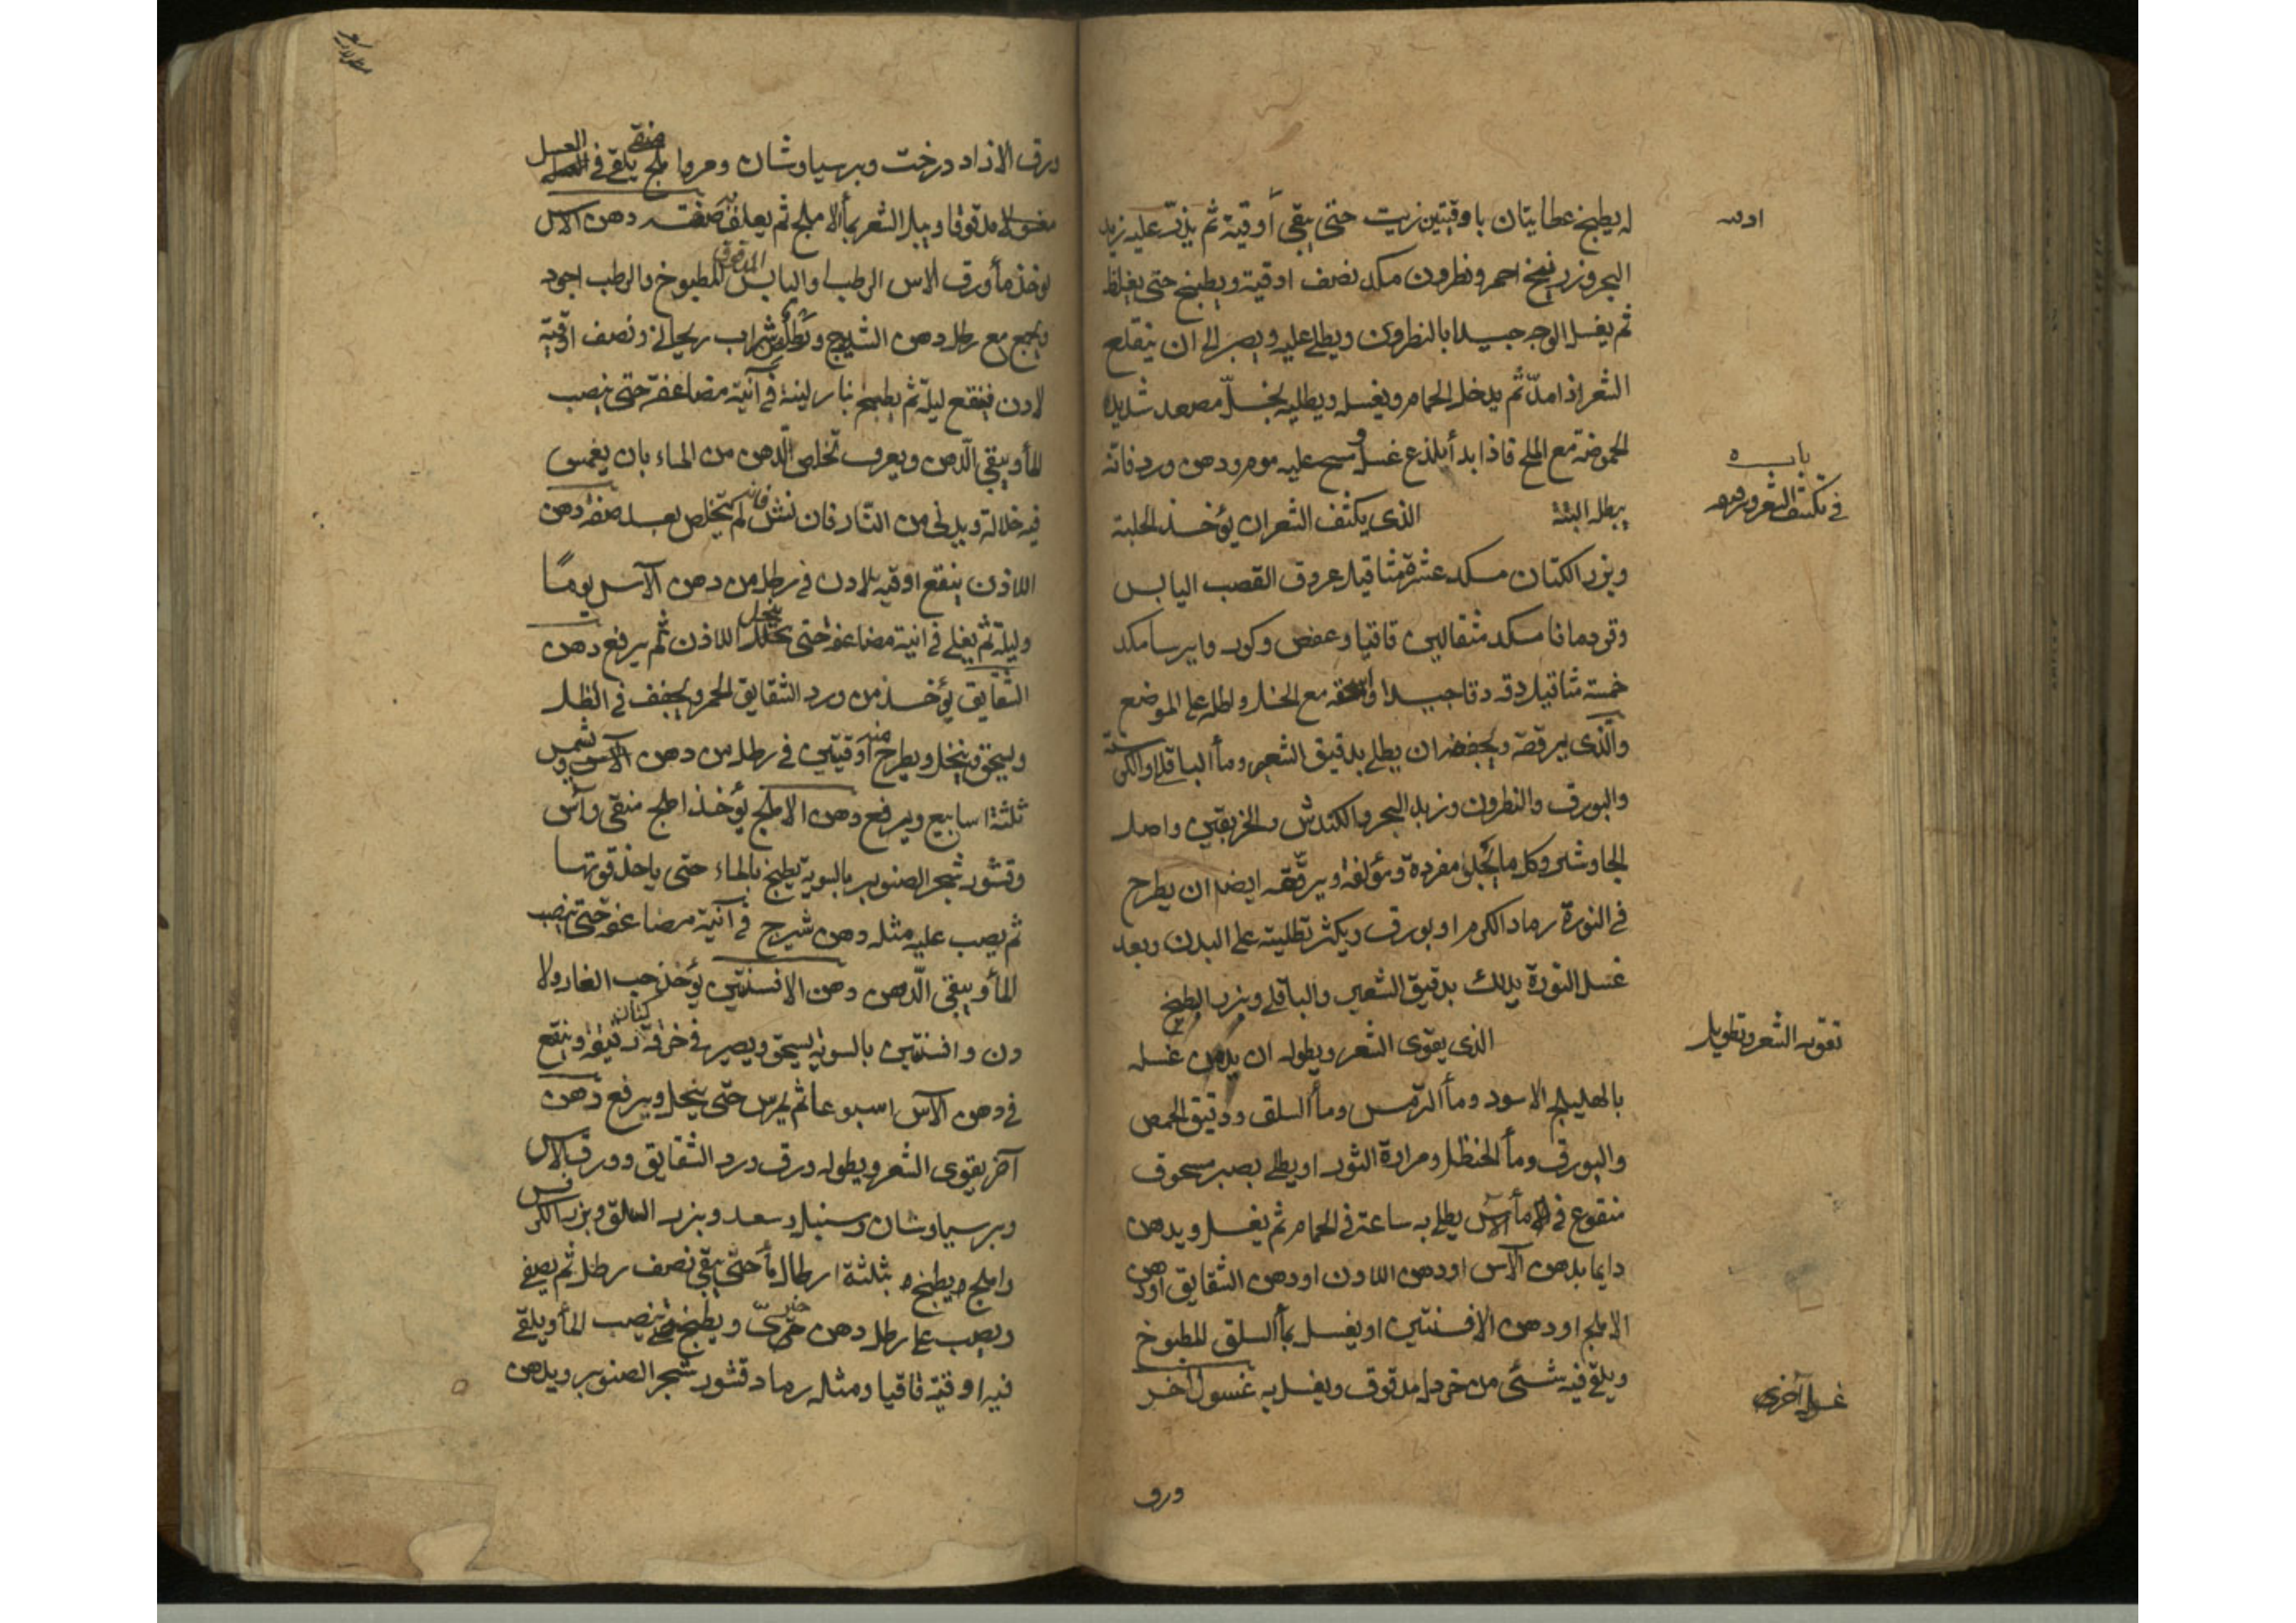 له يطبخ عظايتان باوقيتين زيت حتى يبقى أوقية ثم يذرّ عليه زبد
البحر وزرنيخ احمر ونطرون مكد نصف اوقية ويطبخ حتى يغلظ
ثم يغسل الوجه جيدا بالنطرون ويطلى عليه ويصبر الى ان ينقلع
الشعر اذا مدّ ثم يدخل الحمام ويغسله ويطليه بخلّ مصعد شديد
الحموضة مع الملح فاذا بدأ يلذع غسل ومسح عليه موم ودهن ورد فانه
باب
في تكثيف الشعر
يبطله البتة الذى يكثف الشعر ان يؤخذ الحلبة
وبزر الكتان مكد عشرة مثاقيل عروق القصب اليابس
وقردمانا مكد مثقالين قاقيا وعفص وكور وايرسا مكد
خمسة مثاقيل دقه دقا جيدا واسحقه مع الخل واطله على الموضع
والذى يرققه ويجففه ان يطلى بدقيق الشعير وماء الباقلا والكرسنة
والبورق والنطرون وزبد البحر والكندش والخربقين واصل
الجاوشير وكل ما يجلو مفردة ومؤلفة ويرققه ايضا ان يطرح
فى النورة رماد الكرم او بورق ويكثر تطليته على البدن وبعد
غسل النورة يدلك بدقيق الشعير والباقلى وبزر البطيخ
تقوية الشعر وتطويله
الذى يقوى الشعر ويطوله ان يدمن غسله
بالهليلج الاسود وماء الترمس وماء السلق ودقيق الحمص
والبورق وماء الحنظل ومرارة الثور او يطلى بصبر مسحوق
منقوع فى ماء الآس يطلى به ساعة فى الحمام ثم يغسل ويدهن
دايما بدهن الآس او دهن اللادن او دهن الشقايق او دهن
الاملج او دهن الافسنتين او يغسل بماء السلق المطبوخ
ويلقى فيه شئ من خردل مدقوق ويغسل به غسول آخر
غسول آخر
ورق
ورق الازاد درخت وبرسياوشان ومرو املج منقى يلقى فى العسل
مغسولا مدقوقا ويبل الشعر بماء الاملج ثم يعلف صفة دهن الآس
يؤخذ ماء ورق الاس الرطب او اليابس المدقوق المطبوخ والرطب اجود
ويجمع مع رطل دهن الشيرج ورطل شراب ريحانى ونصف اوقية
لادن فينقع ليلة ثم يطبخ بنار لينة فى آنية مضاعفة حتى ينصب
الماء ويبقى الدهن ويعرف تخلص الدهن من الماء بان يغمس
فيه خلالة ويدنى من النار فان نش فانه لم يتخلص بعد صفة دهن
اللاذن ينقع اوقية لادن فى رطل من دهن الآس يومًا
وليلة ثم يغلى فى انية مضاعفة حتى ينحل اللاذن ثم يرفع دهن
الشقايق يؤخذ من ورد الشقايق الحمر ويجفف فى الظل
ويسحق وينخل ويطرح منه أوقيتين فى رطل من دهن الآس ويشمس
ثلثة اسابيع ويرفع دهن الاملج يؤخذ املج منقى وآس
وقشور شجر الصنوبر بالسوية يطبخ بالماء حتى ياخذ قوتها
ثم يصب عليه مثله دهن شيرج فى آنية مضاعفة حتى ينصب
الماء ويبقى الدهن دهن الافسنتين يؤخذ حب الغار ولا
دن وافسنتين بالسوية يسحق ويصير فى خرقة كتان وينقع
فى دهن الآس اسبوعا ثم يمرس حتى ينحل ويرفع دهن
آخر يقوى الشعر ويطوله ورق ورد الشقايق وورق الاس
وبرسياوشان وسنبل وسعد وبزر السلق وبزر الكرفس
واملج يطبخ بثلثة ارطال ماء حتى يبقى نصف رطل ثم يصفى
ويصب على رطل دهن خيرى ويطبخ حتى ينصب الماء ويلقى
فيه اوقية قاقيا ومثله رماد قشور شجر الصنوبر ويدهن